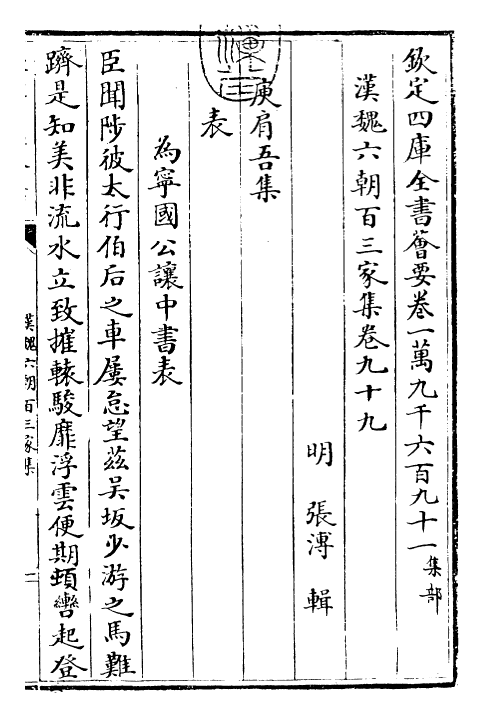 欽定四庫全書薈要卷一萬九千六百九十一 集部
漢魏六朝百三家集卷九十九
明 張溥 輯
庾肩吾集
表
為寧國公讓中書表
臣聞陟彼太行伯后之車屢怠望茲吴坂少游之馬難
躋是知美非流水立致摧轅駿靡浮雲便期頓轡起登
漢魏六朝百三家集